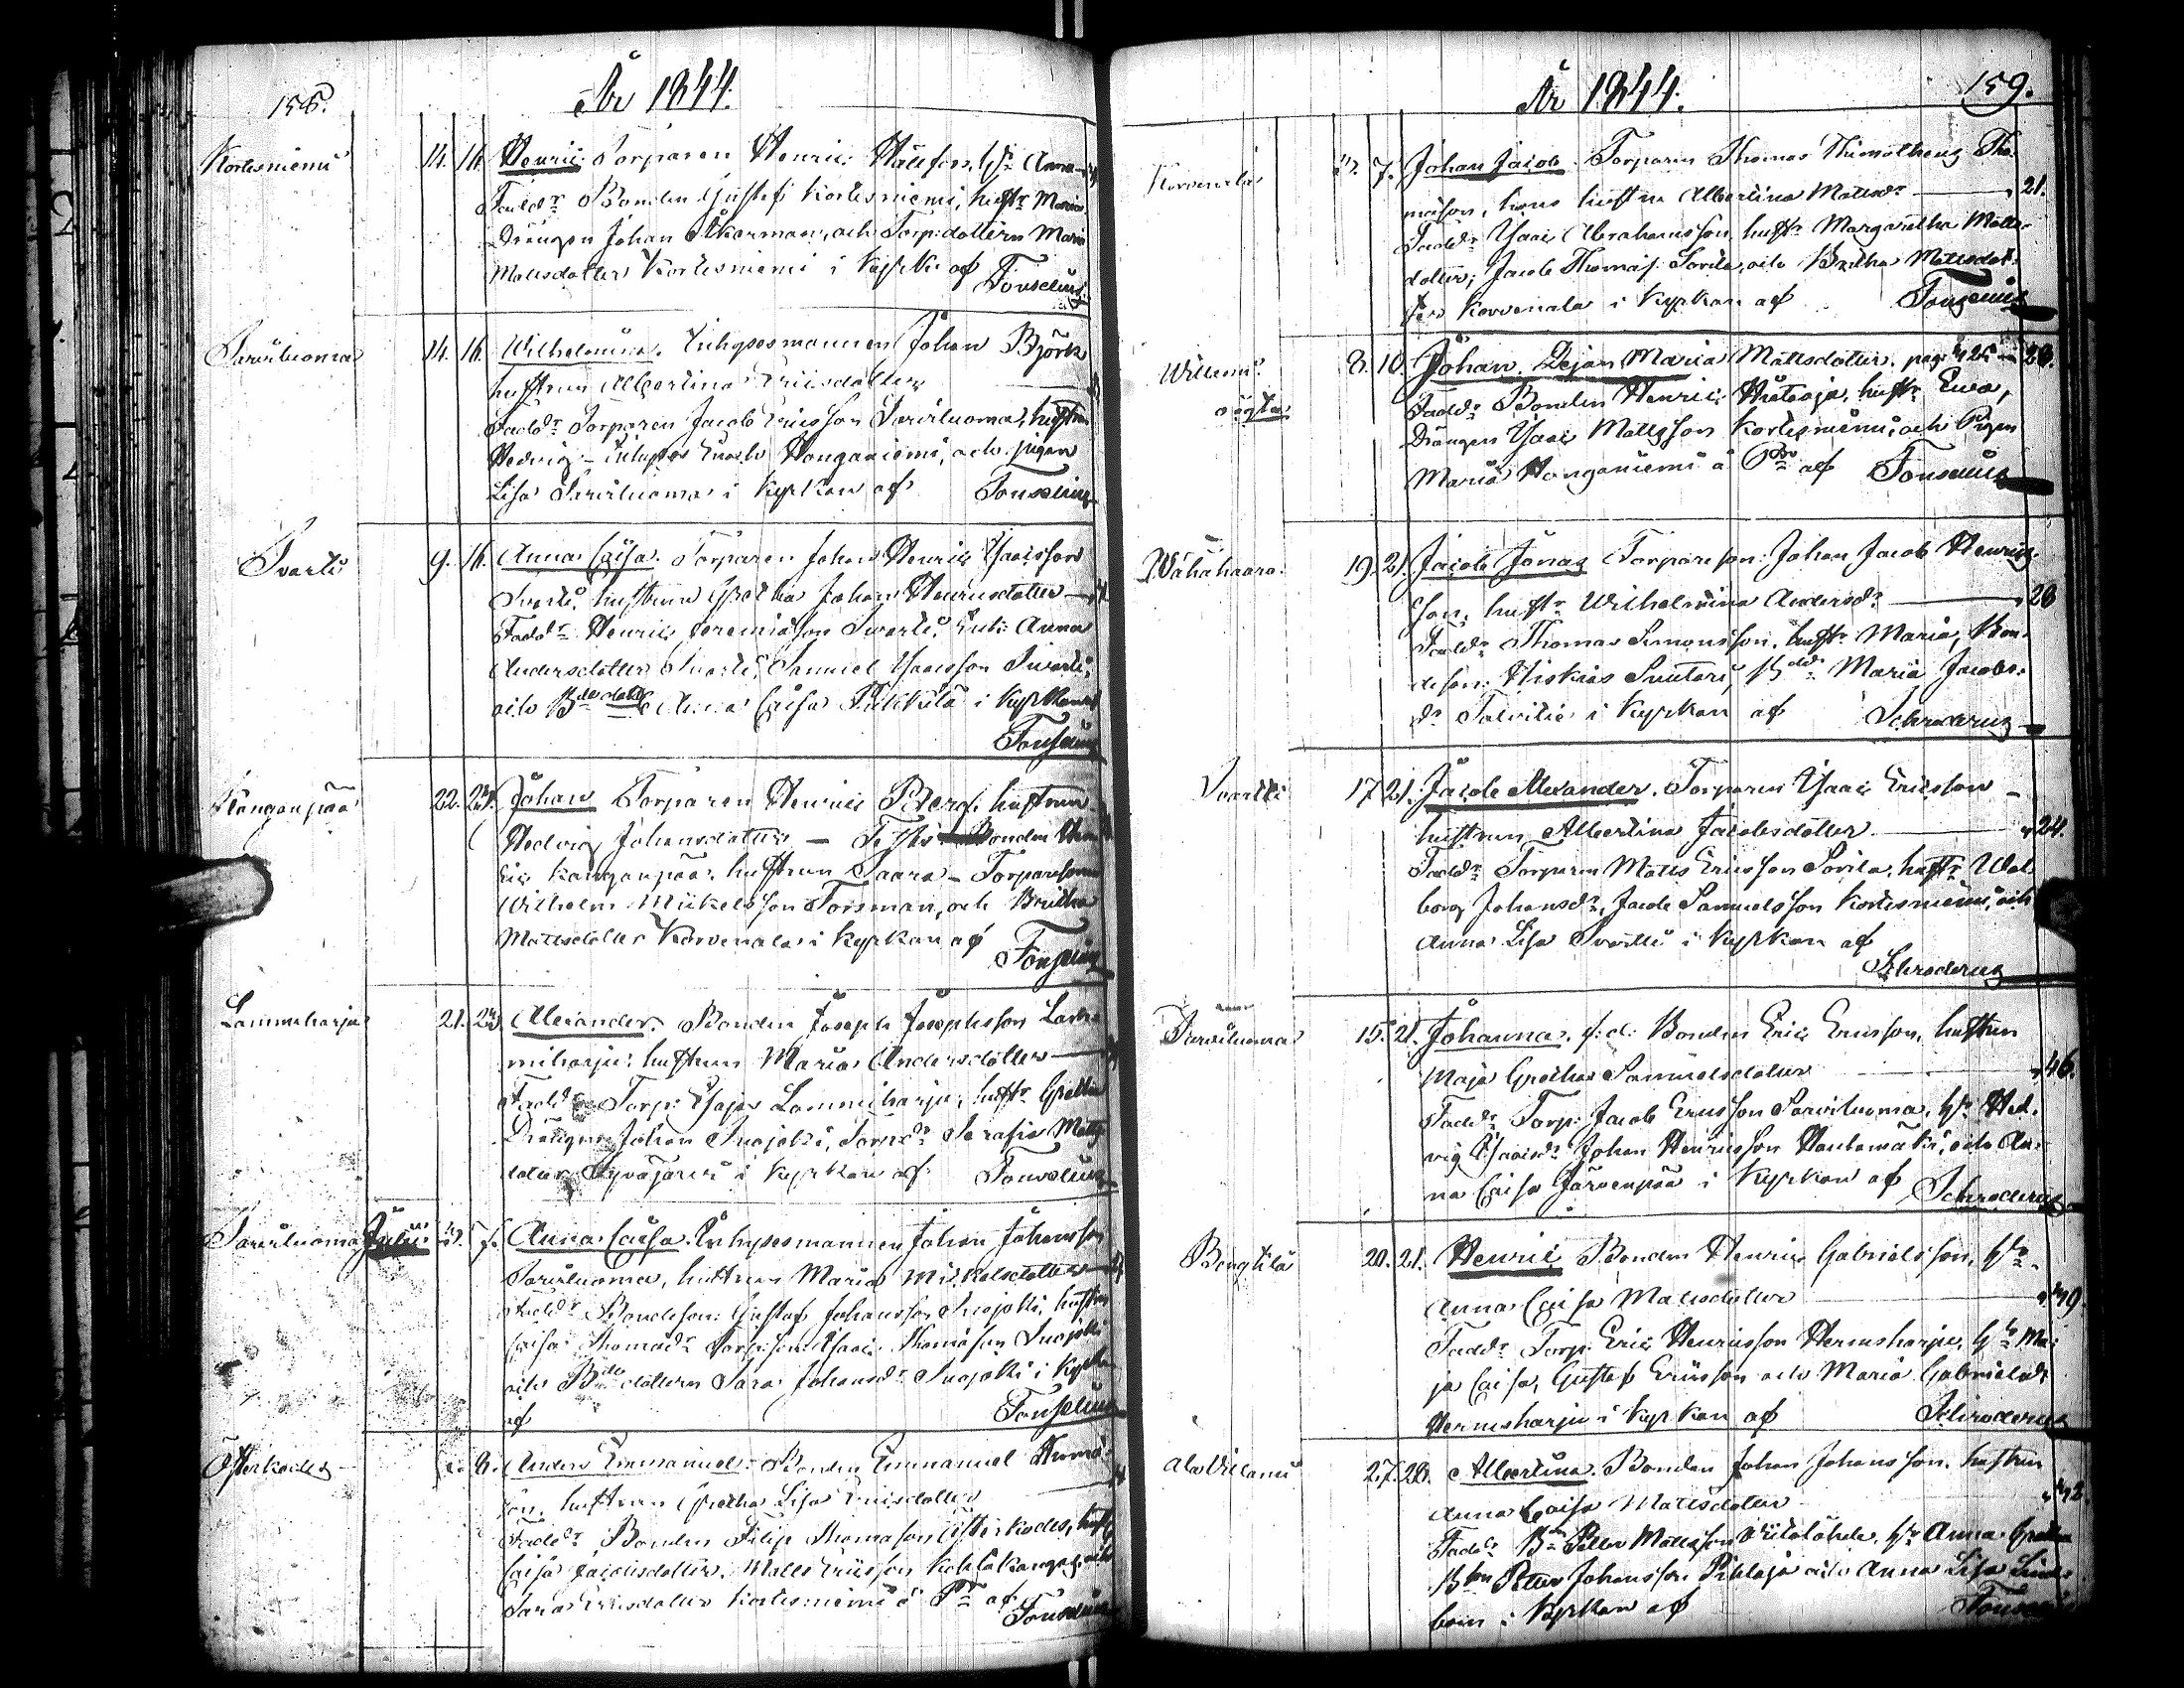 158.
År 1844.
Kortesniemi 14. 16. Henric. Torparen Henric Mattson, h:u Anna
Fadd:r Bonden Gustaf Kortesniemi, hust:r Maria
Drängen Johan Åkerman, och Torp:dottern Maria
Mattsdotter Kortesniemi i Kyrk: af Tonselius
Sarviluoma 14. 16. Wilhelmina. Inhysesmannen Johan Björk
hustrun Albertina Ericsdotter
Fadd:r Torparen Jacob Ericsson Sarviluoma, hustrun
Hedvig – Inhyses Enoch Honganiemi, och pigan
Lisa Sarviluoma i Kyrkan af Tonselius
Svarti 9. 16. Anna Caisa. Torparen Johan Henric Isacsson
Svarti, hustrun Gretha Johan Henricsdotter
Fadd:r Henric Jeremiasson Svarti, Enk: Anna
Andersdotter Svarti, Samuel Isacsson Svarti,
och B:dedott: Anna Caisa Pukkila i Kyrkan af
Tonselius
Kanganpää 22. 23. Johan Torparen Henric Petters: hustrun
Hedvig Johansdotter – Test: Bonden Hen
ric Kanganpää, hustrun Saara – Torparesonen
Wilhelm Mickelsson Forsman, och Britha
Mattsdotter Korvenala i Kyrkan af Tonselius
Lammiharju 21. 23. Alexander. Bonden Joseph Josephsson Lam
miharju, hustrun Maria Andersdotter
Fadd:r Torp: Isajas Lammiharju, hust:r Gretha
Drängen Johan Suojoki, Serafia Matts
dotter Syväjärvi i Kyrkan af Tonselius
Sarviluoma Julii 3. 7. Anna Caisa. Inhysesmannen Johan Johansson
Sarviluoma, hustrun Maria Mickelsdotter
Fadd:r Bondeson: Gustaf Johansson Suojoki, hustrun
Caisa Thomasd:r Torp:son Isaac Thomasson Suojoki
och B:de dottern Sara Johansd:r Suojoki i Kyrkan
af Tonselius
Österkodes 6. Anders Emmanuel. Bonden Emmanuel Thoma
son, hustrun Gretha Lisa Ericsdotter
Fadd:r Bonden Filip Thomasson Österkodes, hust:
Caisa Jacobsdotter, Matts Ericsson Kohlakangas, och
Sara Ericsdotter Kortesniemi å P:r af Tonselius
År 1844.
159.
Korvenala 3. 7. Johan Jacob. Torparen Thomas Thimotheus Tho
mason, hans hustru Albertina Mattsd:r 21.
Fadd:r Isaac Abrahamsson, hust:r Margaretha Matts
dotter, Jacob Thomas: Sorila, och Britha Mattsdot
ter Korvenala i Kyrkan af Tonselius
Willemi 8. 10. Johan. Pejan Maria Mattsdotter. pag: 28.
oägta
Fadd:r Bonden Henric Hietaoja, hust:r Ewa,
Drängen Isaac Mattsson Kortesniemi, och Pigan
Maria Honganiemi å P:r af Tonselius
Wähähaara 19. 21. Jacob Jonas Torpareson: Johan Jacob Henrics
son, hust:r Wilhelmina Andersd:r 28
Fadd:r Thomas Simonsson, hust:r Maria, Bon
deson: Hiskias Suutari, B:dd:r Maria Jacobs
d:r Talvitie i Kyrkan af Schroderus
Svartti 17 21. Jacob Alexander. Torparen Isaac Ericsson
hustrun Albertina Jacobsdotter 24.
Fadd:r Torparen Matts Ericsson Sorila, hust:r Wal
borg Johansd:r, Jacob Samuelsson Kortesniemi, och
Anna Lisa Svartti i Kyrkan af
Schroderus
Sarviluoma 15. 21. Johanna. f:d: Bonden Eric Ericsson, hustrun
Maja Gretha Samuelsdotter 46.
Fadd:r Torp: Jacob Ericsson Sarviluoma, h:u Hed
vig Isaacsd:r Johan Henricsson Hautamäki, och An
na Caisa Järvenpää i Kyrkan af Schroderus
Bengtilä 20. 21. Henric Bonden Henric Gabrielsson, h:u
Anna Caisa Mattsdotter
Fadd:r Torp: Eric Henricsson Hernesharju, h:u Ma
ja Caisa, Gustaf Ericsson och Maria Gabrielsd:r
Hernesharju i Kyrkan af Schroderus
Ala Willami 27. 28. Albertina. Bonden Johan Johansson, hustrun
Anna Caisa Mattsdotter 42.
Fadd:r B:n Petter Mattsson, h:u Anna Gretha
B:son Petter Johansson Pihlaja och Anna Lisa Lind
bom i Kyrkan af Tonselius